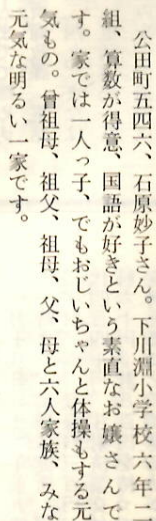 公田町五四六、石原妙子さん。下川淵小学校六年二
組、算数が得意、国語が好きという素直なお嬢さんで
す。家では一人っ子、でもおじいちゃんと体操もする元
気もの。曾祖母、祖父、祖母、父、母と六人家族、みな
元気な明るい一家です。